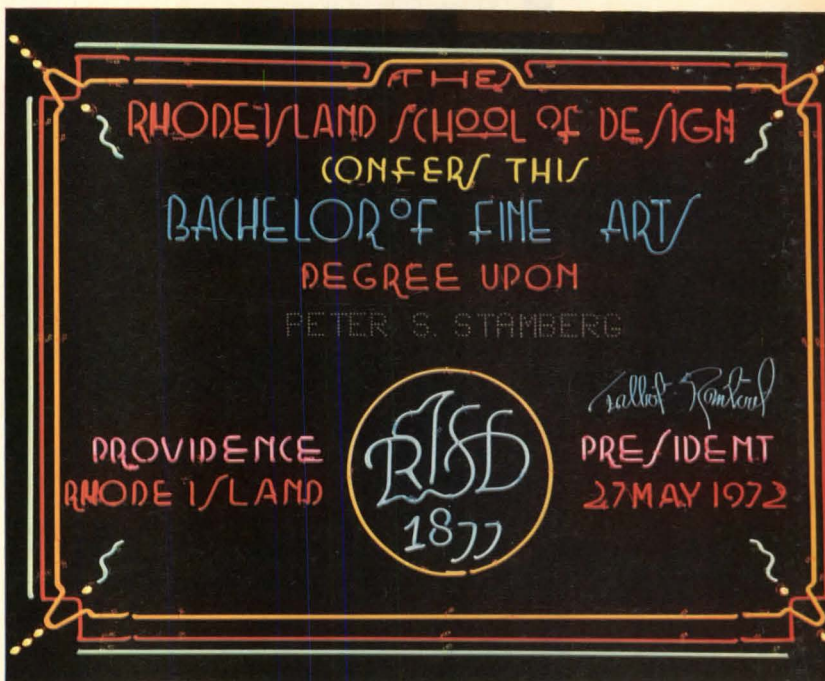 THE
RHODE ISLAND SCHOOL OF DESIGN
CONFERS THIS
BACHELOR OF FINE ARTS
DEGREE UPON
PETER S. STAMBERG
Talbot Rantoul
PROVIDENCE
RHODE ISLAND
RISD
1877
PRESIDENT
27 MAY 1972